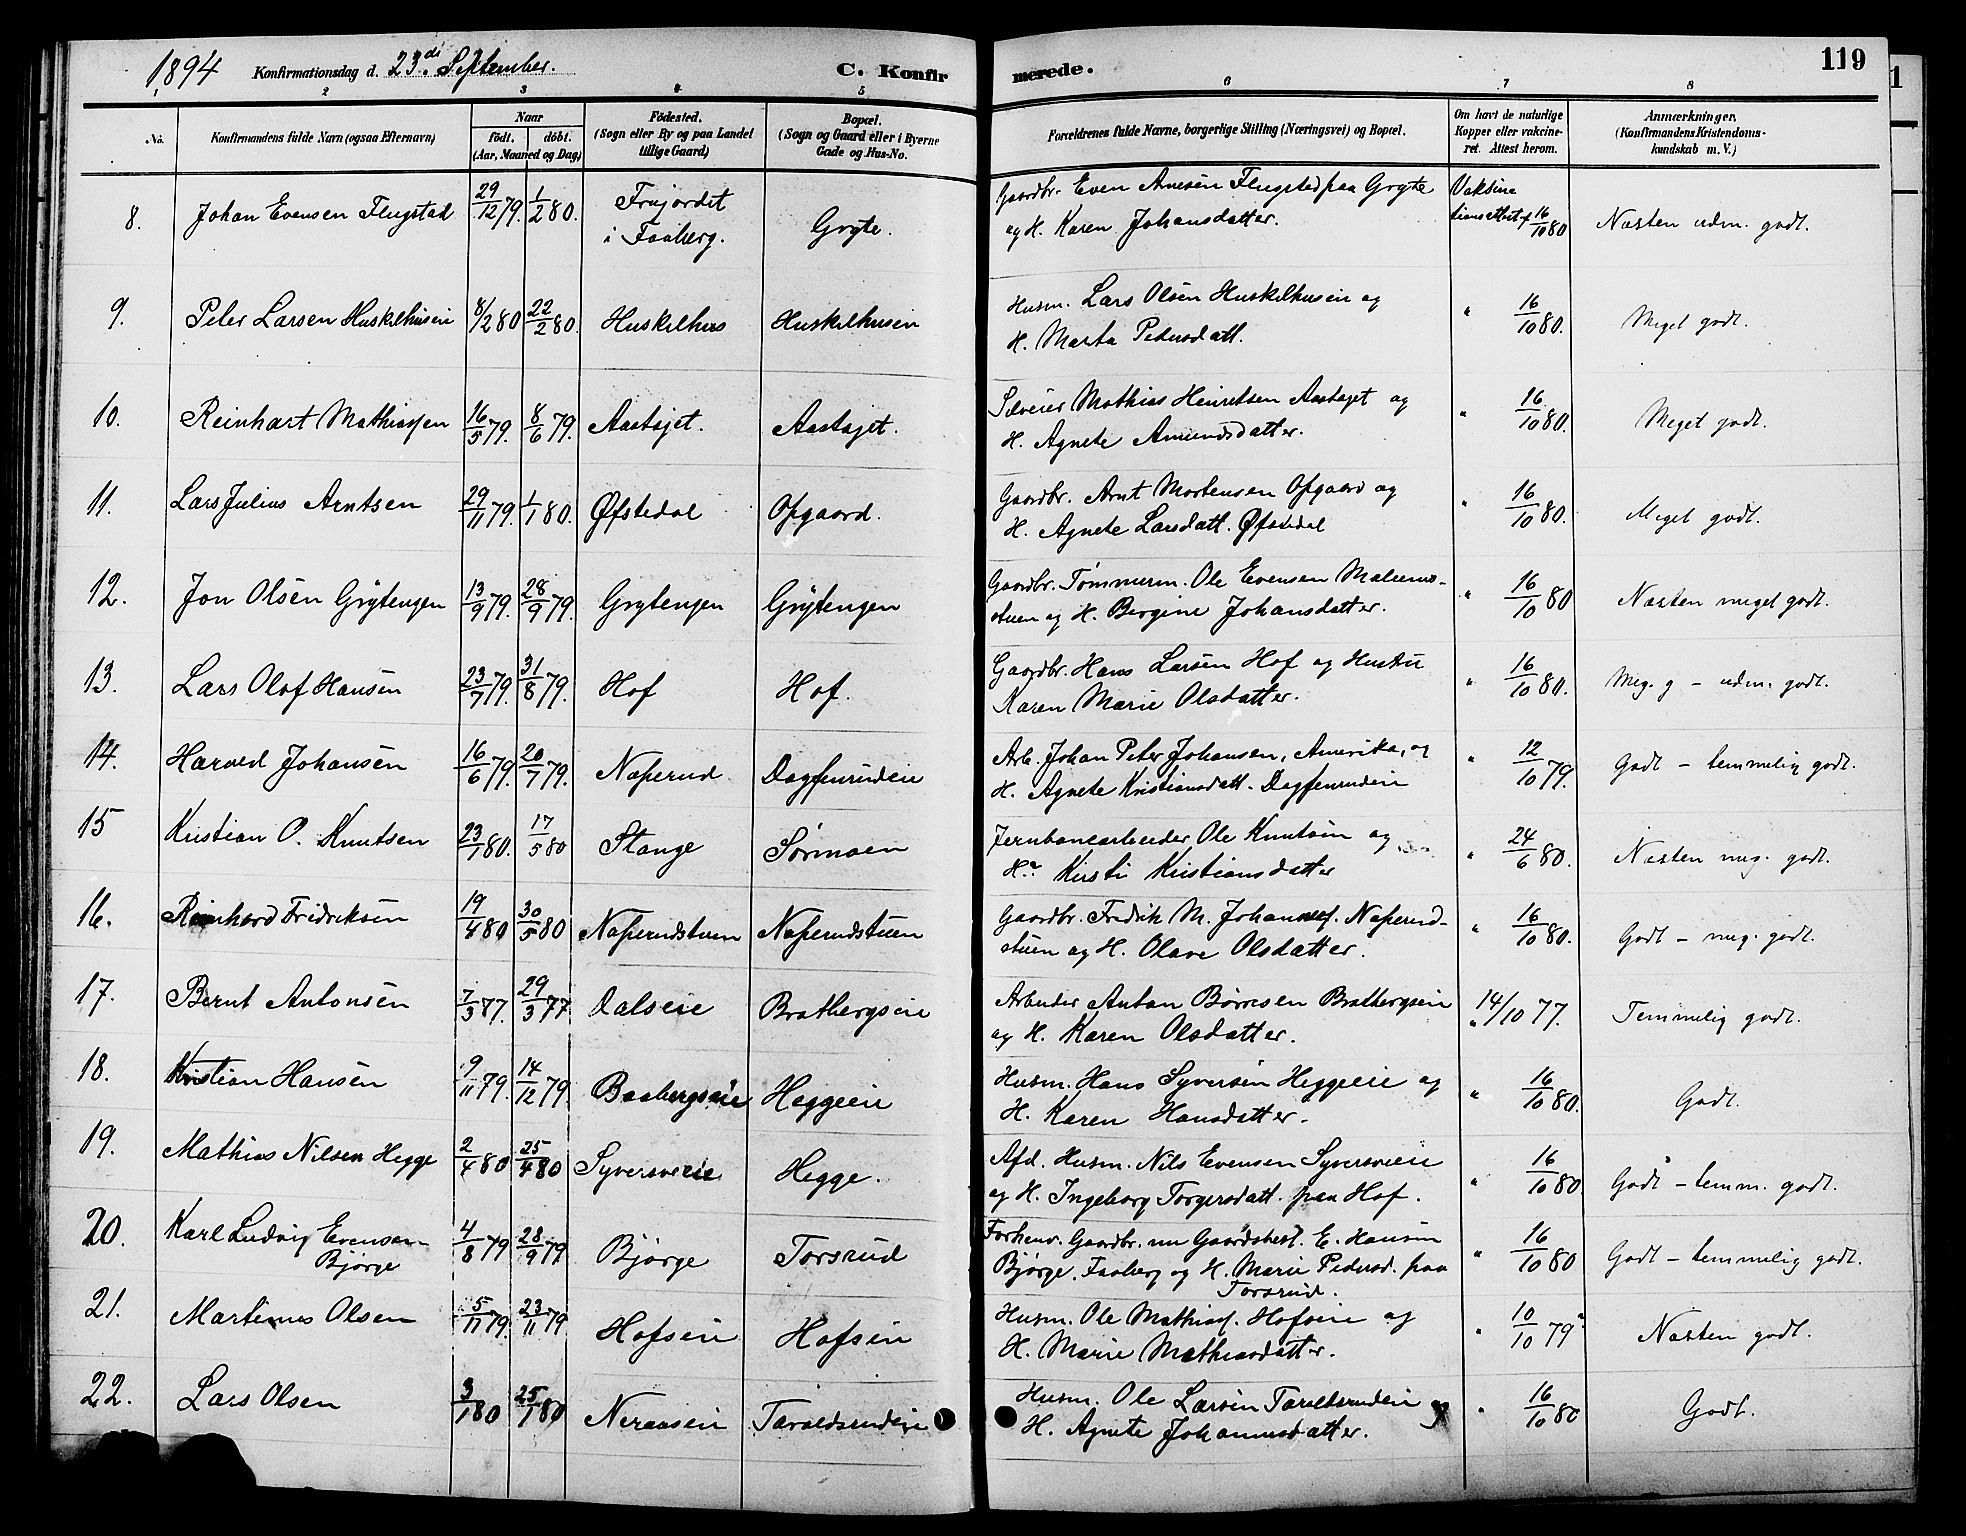 1894 Konfirmationsdag d. 23.de September.
C. Konfir
merede.
119
2 3 4 5 6 7 8
No. Konfirmandens fulde Navn (ogsaa Efternavn)
Naar
født, døbt.
(Aar, Maaned og Dag)
Fødested.
(Sogn eller By og paa Landet
tillige Gaard)
Bopæl.
(Sogn og Gaard eller i Byerne
Gade og Hus-No.
Forældrenes fulde Navne, borgerlige Stilling (Næringsvei) og Bopæl.
Om havt de naturlige
Kopper eller vakcine-
ret. Attest herom.
Anmærkninger,
(Konfirmandens Kristendoms-
kundskab m. V.)
8. Johan Evensen Flugstad 29/12 79. 1/2 80. i Faaberg. Gryte.
Gaardbr. Even Arnesen Flugstad paa Gryte
og H. Karen Johansdatter.
16/10 80 Næsten udm. godt.
9. Peter Larsen Huskelhusein 8/2 80 22/2 80. Huskelhus Huskelhusein
Husm. Lars Olsen Huskelhusein og
H. Marta Pedersdatt.
" 16/10 80. Meget godt.
10. Reinhart Mathiassen 16/5 79. 8/6 79. Aastajet. Aastajet.
Mathias Henretsen Aastajet og
H. Agnete Amundsdatter.
" 16/10 80. Meget godt.
11. Lars Julius Arntsen 29/11 79. 1/1 80. Øfstedal Opgaard.
Gaardbr. Arnt Mortensen Opgaard og
H. Agnete Larsdatt. Øfstedal
" 16/10 80. Meget godt.
12. Jon Olsen Grytengen 13/9 79. 28/9 79. Grytengen Grytengen
Gaardbr. Tømmerm. Ole Evensen
stuen og H. Bergine Johansdatter.
" 16/10 80 Næsten meget godt.
13. Lars Olof Hansen 23/7 79. 31/8 79. Hof Hof.
Gaardbr. Hans Larsen Hof og Hustru
Karen Marie Olsdatter.
" 16/10 80. Meg. g – udm. godt.
14. Harved Johansen 16/6 79. 20/7 79. Naperud. Dagfenrudeie
Arb. Johan Peter Johansen, Amerika, og
H. Agnete Kristiansdatt. Dagfenrudein
" 12/10 79. Godt – temmelig godt.
15 Kristian O. Knutsen 23/1 80. 17/5 80 Stange Sørmoen
Jernbanearbeider Ole Knutsen og
H. Kirsti Kristiansdatter
" 24/6 80. Næsten meg. godt.
16. Reinhard Fridriksen 19/4 80 30/5 80 Naperudstuen Naperudstuen
Gaardbr. Fredrik M. Johannes. Naperud-
stuen og H. Olave Olsdatter.
" 16/10 80. Godt – meg. godt.
17. Bernt Antonsen 7/3 87. 29/3 77 Dalseie Bratbergseie
Arbeider Anton Børresen Bratbergseie
og H. Karen Olsdatter.
" 14/10 77. Temmelig godt.
18. Kristian Hansen 9/11 79. 14/12 79. Baabergseie Heggeeie
Husm. Hans Syversen Heggeeie og
H. Karen Hansdatter.
" 16/10 80. Godt.
19. Mathias Nilsen Hegge 2/4 80 25/4 80 Syversveeie Hegge.
Afd. Husm. Nils Evensen Syversveeie
og H. Ingeborg Torgersdatt. paa Hof.
" 16/10 80. Godt – temm. godt.
20. Karl Ludvig Evensen
Bjørge 4/8 79 28/9 79 Bjørge Torsrud
Forhenv. Gaardbr. nu Gaardsbest. E. Hansen
Bjørge, Faaberg og H. Marie Pedersd. paa
Torsrud.
" 16/10 80 Godt – temmelig godt.
21. Martinus Olsen 5/11 79. 23/11 79 Hofsein Hofsein
Husm. Ole Mathias. Hofsein og
H. Marie Mathiasdatter.
" 10/10 79 Næsten godt.
22. Lars Olsen 3/1 80 25/1 80 Neraasein Taraldsrudeie
Husm. Ole Larsen Taraldsrudein og
H. Agnete Johannesdatter.
" 16/10 80 Godt.